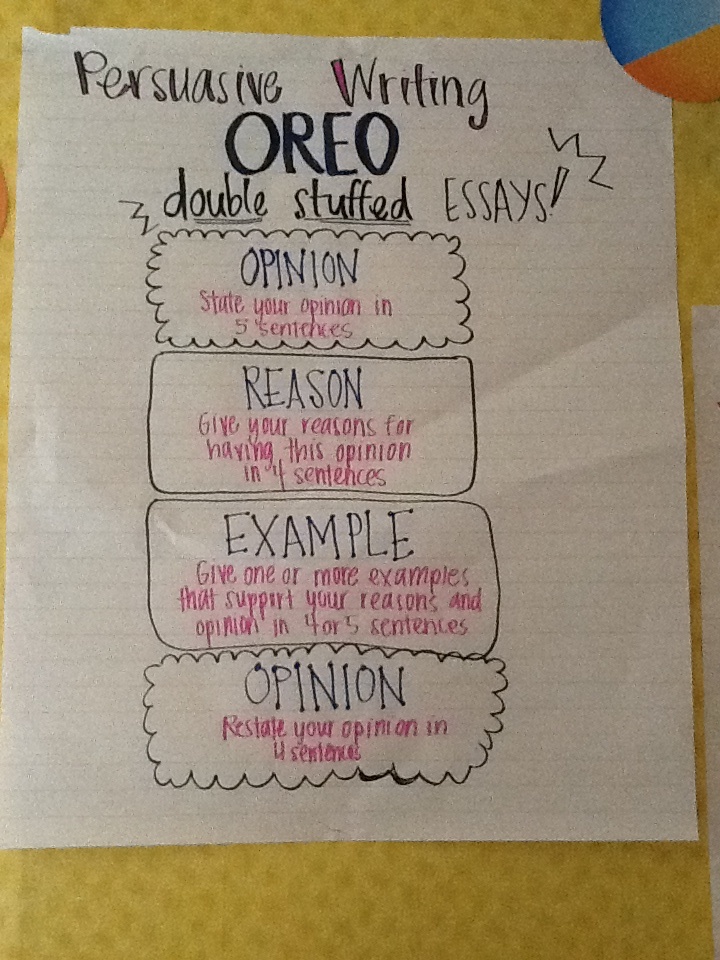 Persuasive Writing
OREO
double stuffed ESSAYS!
OPINION
State your opinion in
5 sentences
REASON
Give your reasons for
having this opinion
in 4 sentences
EXAMPLE
Give one or more examples
that support your reasons and
opinion in 4 or 5 sentences
OPINION
Restate your opinion in
4 sentences